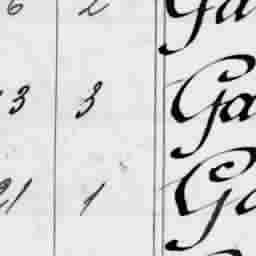 6 2 Ga
3 3 Ga
21 1 Ga